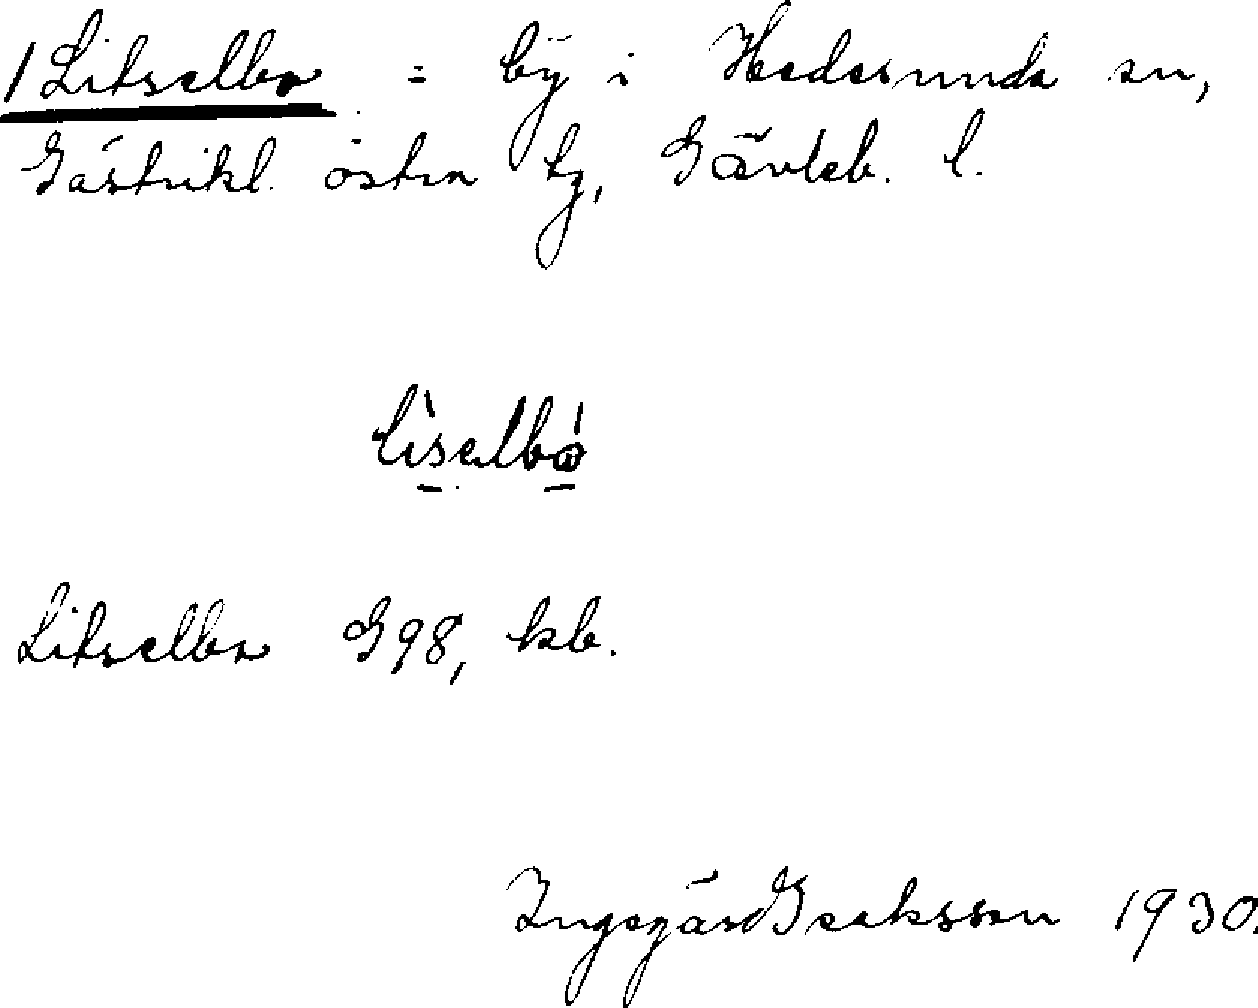 /Litselbo = by i Hedesunda sn,
Gästrikl. östra tg, Gävleb. l.
lìselbó
Litselbo G98, kb.
Ingegärd Isaksson 1930.